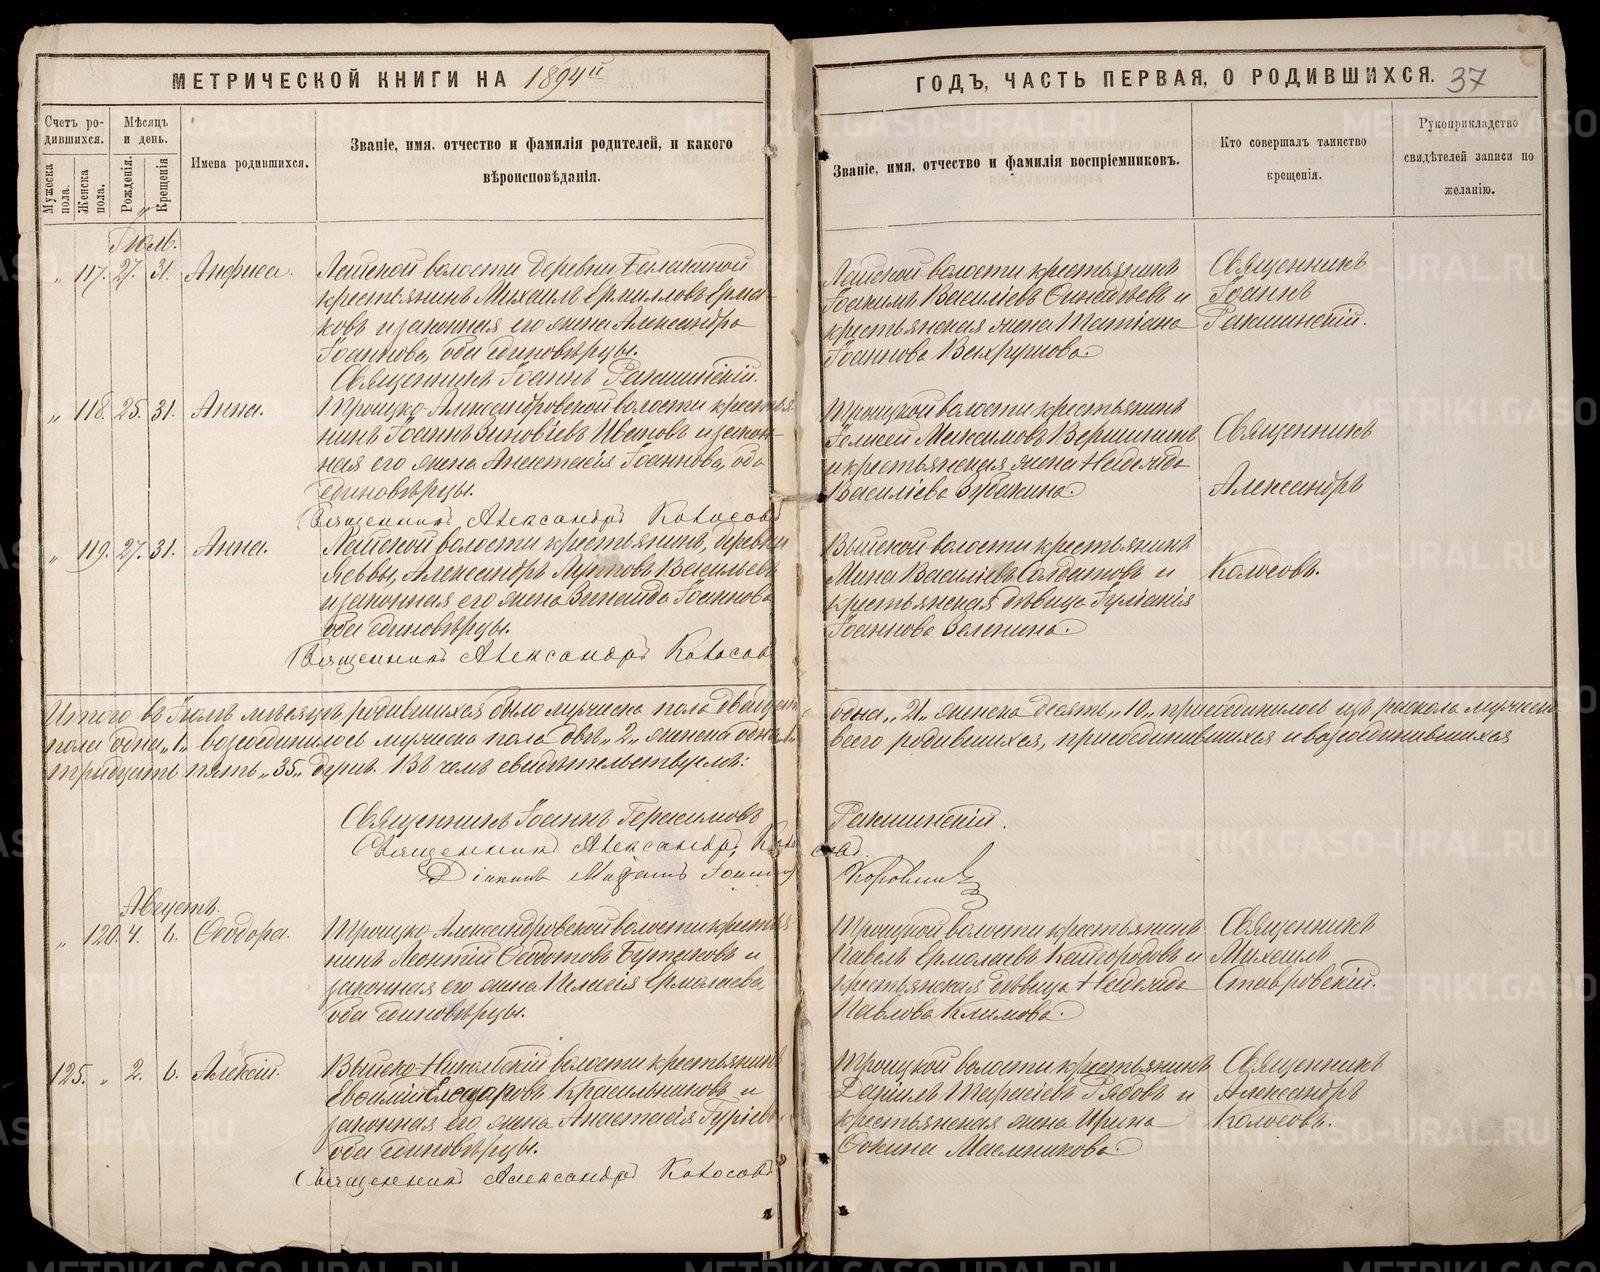 МЕТРИЧЕСКОЙ КНИГИ НА 1894й
ГОДЪ, ЧАСТЬ ПЕРВАЯ, О РОДИВШИХСЯ. 37
Счетъ родившихся.
Мужеска пола.
Женска пола.
Мѣсяцъ и день.
Рожденія.
Крещенія
Имена родившихся.
Званіе, имя, отчество и фамилія родителей, и какого
вѣроисповѣданія.
Званіе, имя, отчество и фамилія воспріемниковъ.
Кто совершалъ таинство
крещенія.
Рукоприкладство
свидѣтелей записи по
желанію.
Іюль.
„ 117. 27. 31. Анфиса.
Лайской волости деревни
крестьянинъ Михаилъ Ермиловъ Ерма-
ковъ и законная его жена Александра
Іоаннова, оба единовѣрцы.
Священникъ Іоаннъ Ракшинскій.
Лайской волости крестьянинъ
Іоакимъ Василіевъ и
крестьянская жена Татіана
Іоаннова Вахрушова.
Священникъ
Іоаннъ
Ракшинскій.
„ 118. 25. 31. Анна.
Троицко-Александровской волости крестья-
нинъ Іоаннъ Зиновіевъ Ивановъ и закон-
ная его жена Анастасія Іоаннова, оба
единовѣрцы.
Священникъ Александръ Колосовъ
Троицкой волости крестьянинъ
Елисей Максимовъ Вершининъ
и крестьянская жена Надежда
Василіева Зубакина.
Священникъ
Александръ
„ 119. 27. 31. Анна.
Лайской волости крестьянинъ, деревни
Александръ Васильевъ
и законная его жена Зинаида Іоаннова
оба единовѣрцы.
Священникъ Александръ Колосовъ
Выйской волости крестьянинъ
Мина Василіевъ Солдатовъ и
крестьянская дѣвица Іуліанія
Іоаннова Зеленина.
Колосовъ.
Итого въ Іюлѣ мѣсяцѣ родившихся было мужеска пола двадцать
одна „21„ женска десять „10„ присоединилось изъ раскола мужеска
пола одна „1„ возсоединилось мужеска пола двѣ „2„ женска одна „1„
всего родившихся, присоединившихся и возсоединившихся
тридцать пять „35„ душъ. Въ чемъ свидѣтельствуемъ:
Священникъ Іоаннъ Герасимовъ Ракшинскій.
Священникъ Александръ Колосовъ.
Діаконъ Михаилъ Коровинъ
Августъ.
„ 120. 4. 6. Ѳеодора.
Троицко-Александровской волости крестья-
нинъ Леонтій Ѳедотовъ Бутаковъ и
законная его жена Пелагія Ермолаева,
оба единовѣрцы.
Троицкой волости крестьянинъ
Павелъ Ермолаевъ Кайгородовъ и
крестьянская дѣвица Надежда
Павлова Климова.
Священникъ
Михаилъ
Ставровскій.
125. „ 2. 6. Алексій.
Выйско-Никольской волости крестьянинъ
Евѳимій Красильниковъ и
законная его жена Анастасія Гуріева,
оба единовѣрцы.
Священникъ Александръ Колосовъ
Троицкой волости крестьянинъ
Даніилъ Тарасіевъ Рябовъ и
крестьянская жена Ирина
Ѳокина Масленникова.
Священникъ
Александръ
Колосовъ.
METRIKI.GASO-URAL.RU